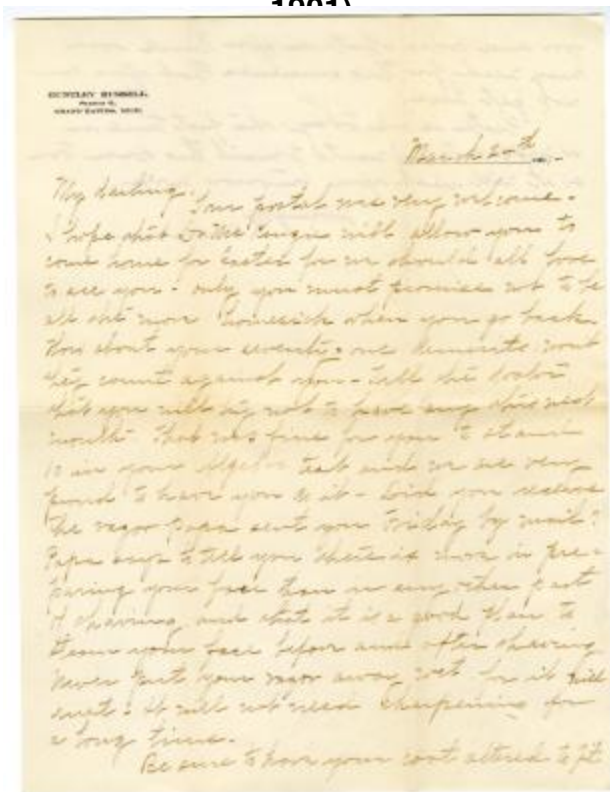 1901)
HUNTLEY RUSSELL,
GRAND RAPIDS, MICH.
March
My darling.
Your postal was very welcome -
I hope that will allow you to
come home for Easter for we should all love
to see you - only you must promise not to be
all the more homesick when you go back.
How about your seventy-one demerits wont
they count against you - tell the doctor
that you will try not to have any this next
month. That was fine for you to stand
in your Algebra test and we are very
proud to have you do it - Did you receive
the razor Papa sent you Friday by mail?
Papa says to tell you there is more in pre-
paring your face than in any other part
of shaving, and that it is a good plan to
your face before and after shaving
Never put your razor away wet for it will
rust - it will not need sharpening for
a long time.
Be sure to have your coat altered to fit